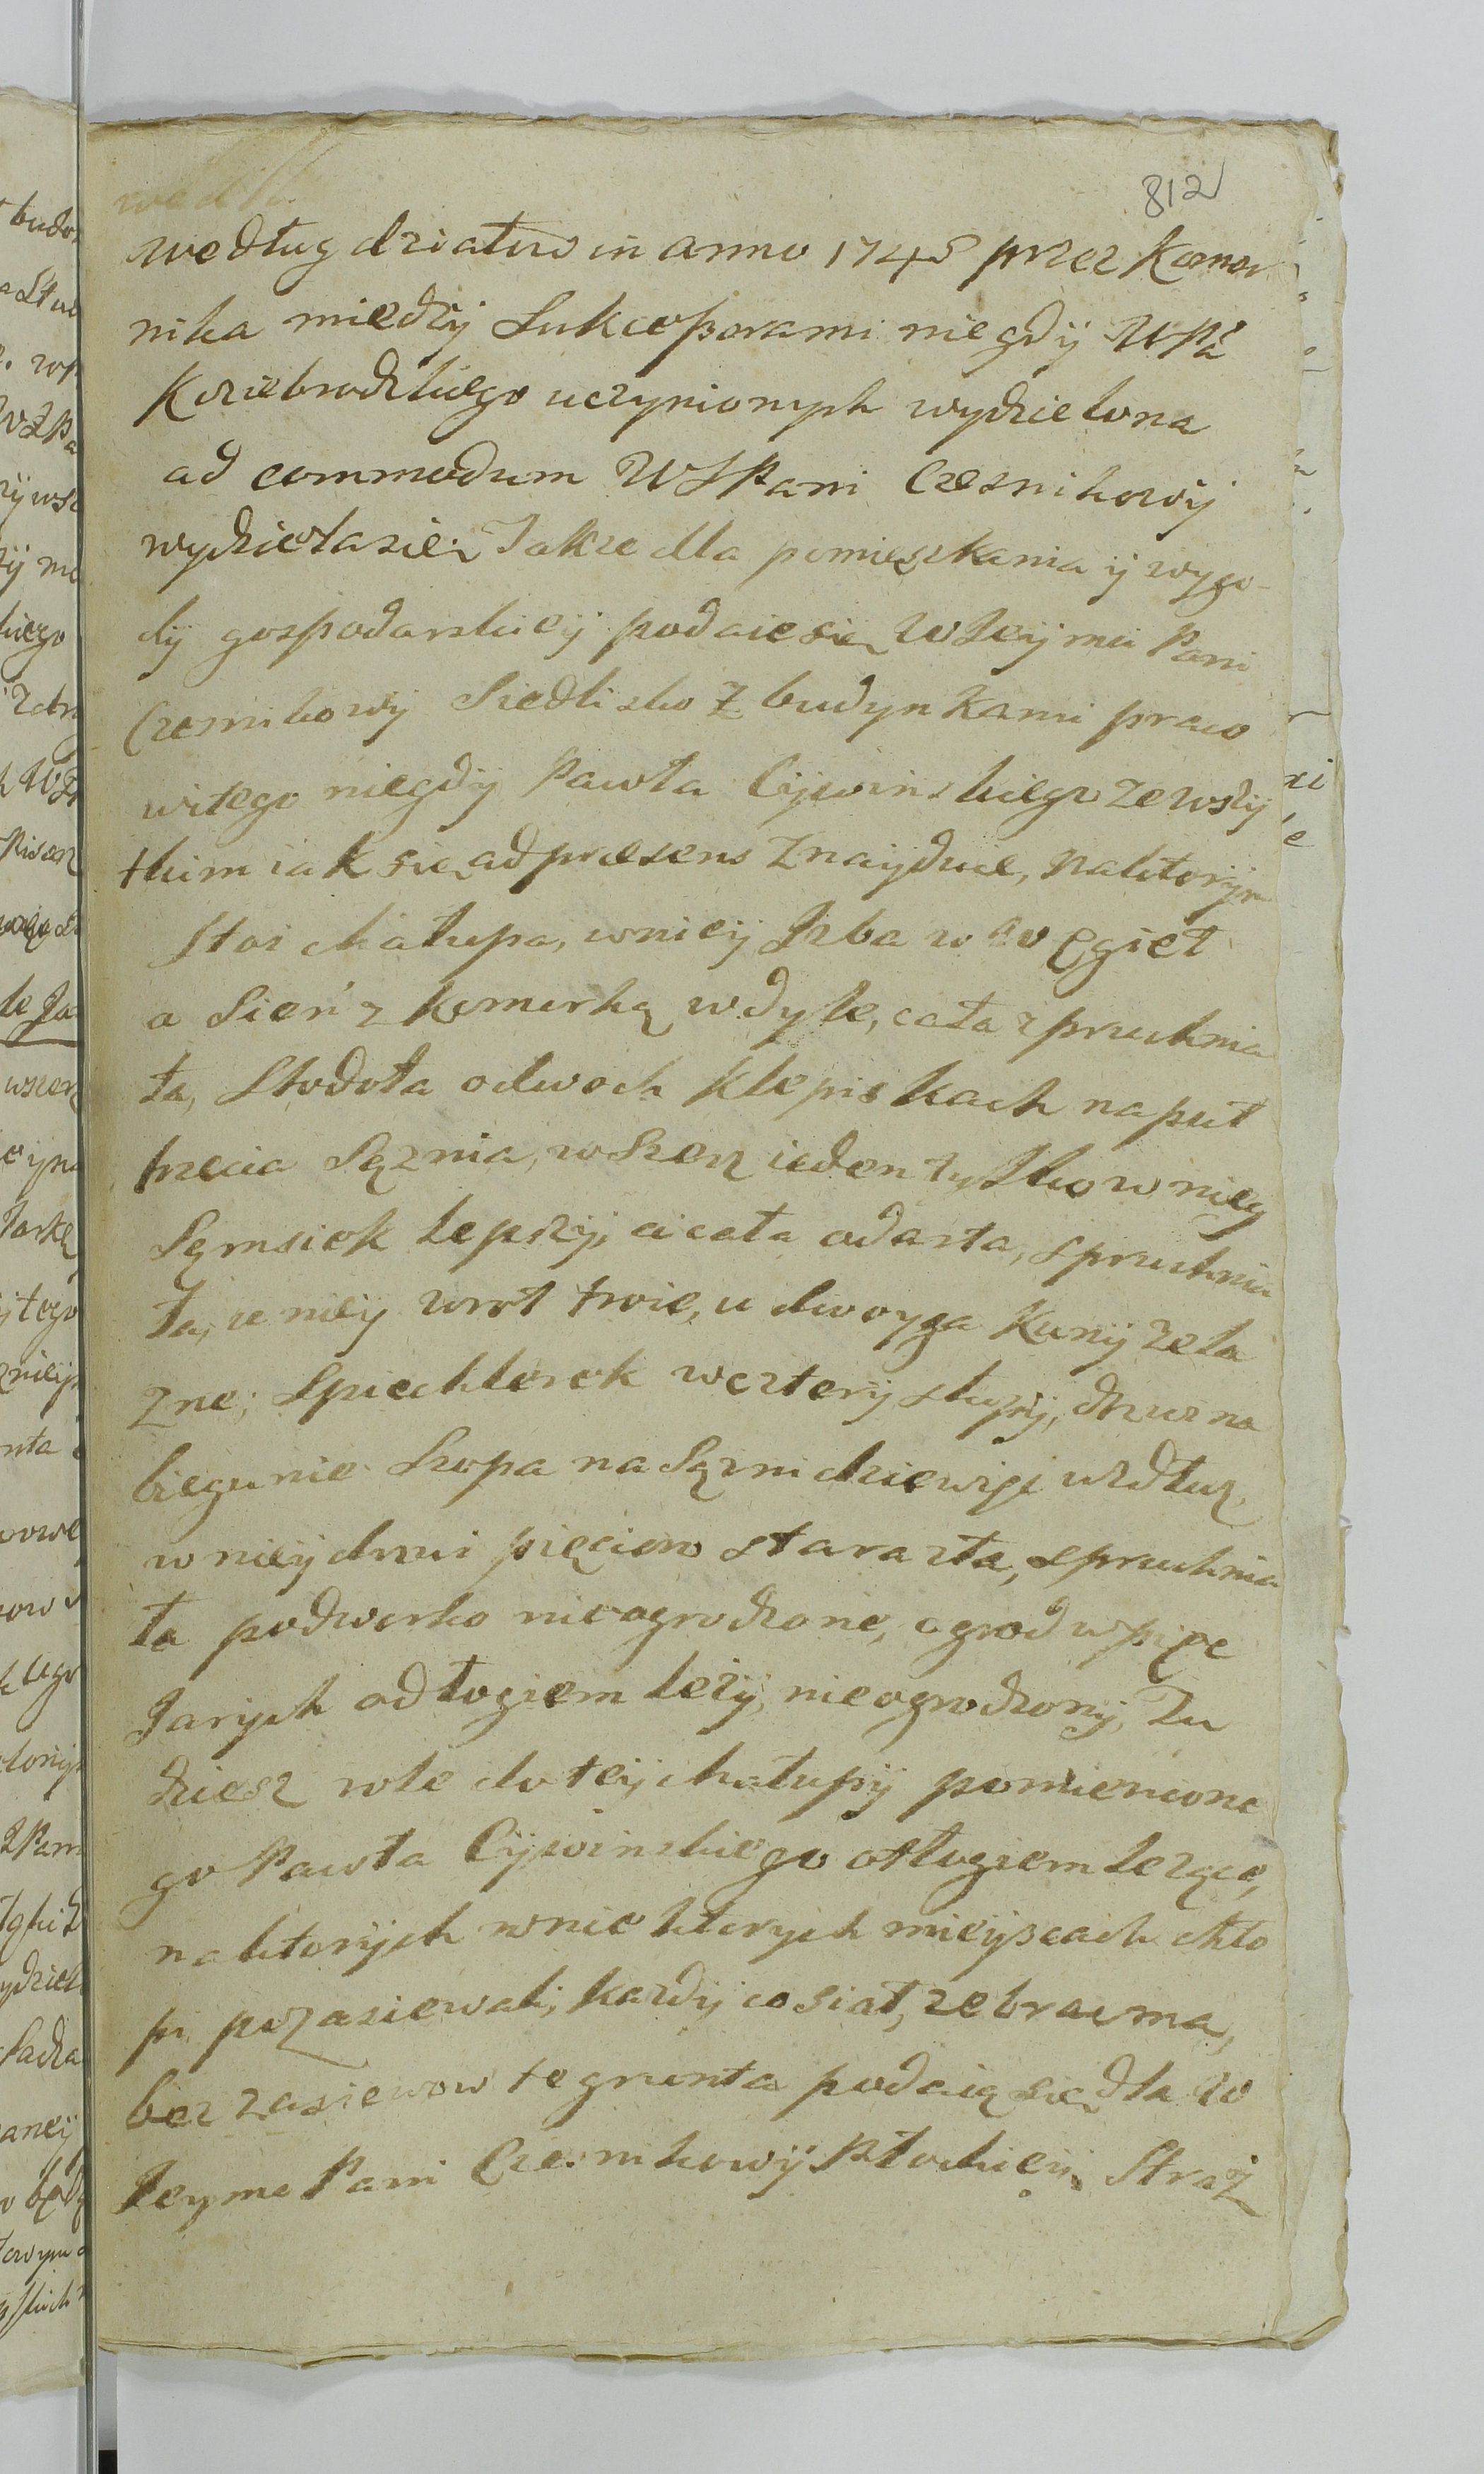 812
według działow in anno 1745 przez Komor
nika między Sukcessorami niegdy WPa
Kosiebrodzkiego uczynionych wydzielona
ad commodum WJPani Czesnikowy
wydzieła się. Także dla pomieszkania y wygo-
dy gospodarskiey podaie się WJeymci Pani
Czesnikowy Siedlisko z budynkami praco
witego niegdy Pawła Cywinskiego ze wszy
tkim iak się ad præsens znayduie, na ktorym
Stoi chałupa, w niey Izba w węgieł
a Sień z komorką w dyle, cała zpruchnia
ła, Stodoła o dwoch klepiskach na puł
trzecia Sążnia, wszerz ieden tylko w niey
Sąmsiek lepszy, a cała odarta, spruchnia
ła, u niey wrot troie, u dwoyga kuny żela
zne; Spichlerek w cztery słupy, drzwi na
biegunie Szopa na Sążni dziewięć wzdłuż
w niey drzwi pięcioro stara zła, spruchnia
ła podworko nieogrodzone, ogrod w pięc
Jarych odłogiem leży, nieogrodzony, Tu
dziesz role do tey chałupy pomienione
go Pawła Cywinskiego odłogiem leżące,
na ktorych w niektorych mieyscach chło
pi pozasiewali, każdy co siał, zebrac ma,
bez zasiewow te grunta podaią się dla W
Jeymc Pani Czesnikowy Płockiey. Straż